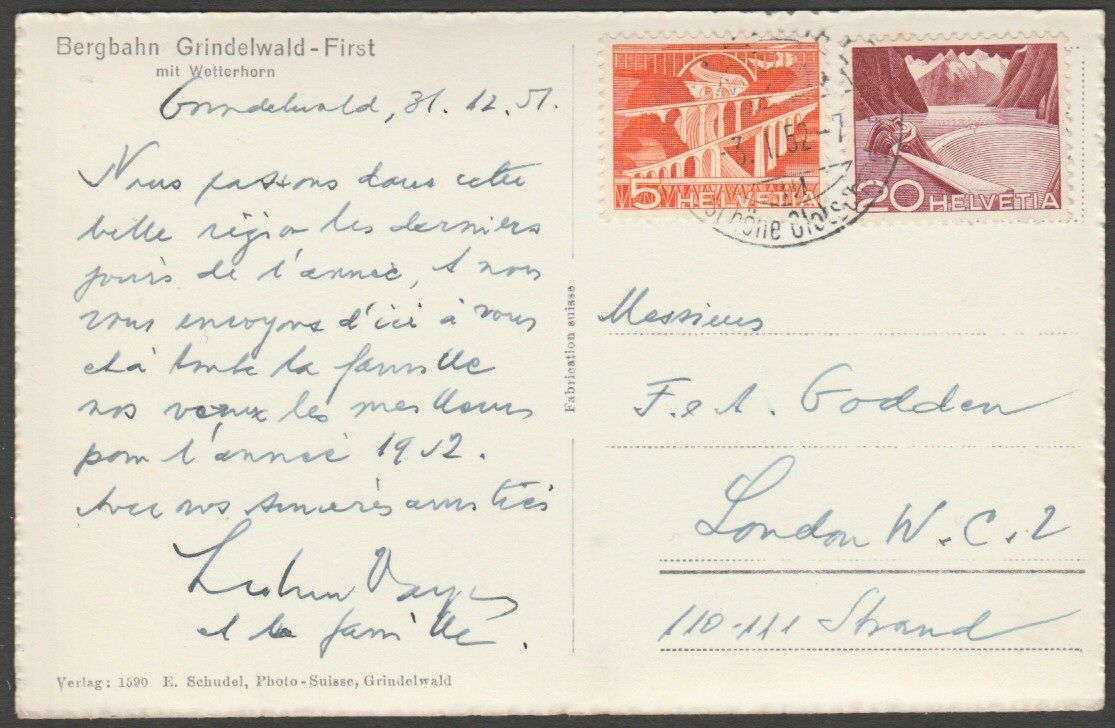 Bergbahn Grindelwald-First
mit Wetterhorn
Grindelwald, 31. 12. 51.
Nous passons dans cette
belle région les derniers
jours de l'année, & nous
vous envoyons d'ici à vous
et à toute la famille
nos vœux les meilleurs
pour l'année 1952.
Avec nos sincères amitiés
et la famille.
Verlag: 1590 E. Schudel, Photo-Suisse, Grindelwald
Fabrication suisse
5 HELVETIA
20 HELVETIA
-3. I. 52-7
Messieurs
F. & A. Godden
London W.C.2
110-111 Strand